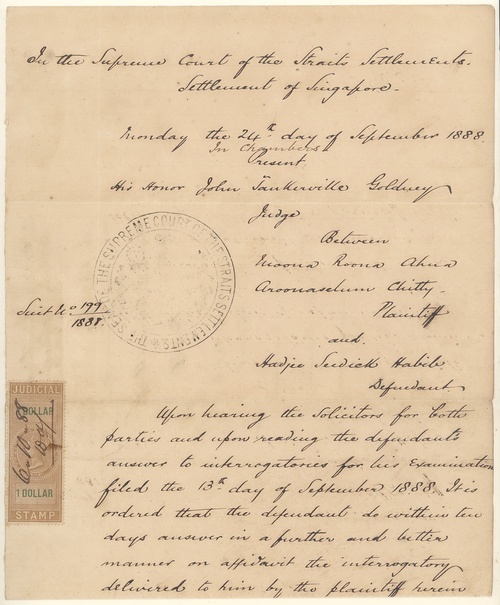 In the Supreme Court of the Straits Settlements.
Settlement of Singapore.
Monday the 24th day of September 1888
In Chambers
Present
His Honor John Tankerville Goldney
Judge
Between
Moona Roona Ahna
Aroonaselum Chitty
Plaintiff
and
Hadjee Sudick Habib
Defendant
Suit No 199
1888
THE SEAL OF THE SUPREME COURT OF THE STRAITS SETTLEMENTS
JUDICIAL
1 DOLLAR
6-10-88
1 DOLLAR
STAMP
Upon hearing the Solicitors for both
parties and upon reading the defendants
answer to interrogatories for his Examination
filed the 13th day of September 1888. It is
ordered that the defendant do within ten
days answer in a further and better
manner on affidavit the interrogatory
delivered to him by the plaintiff herein